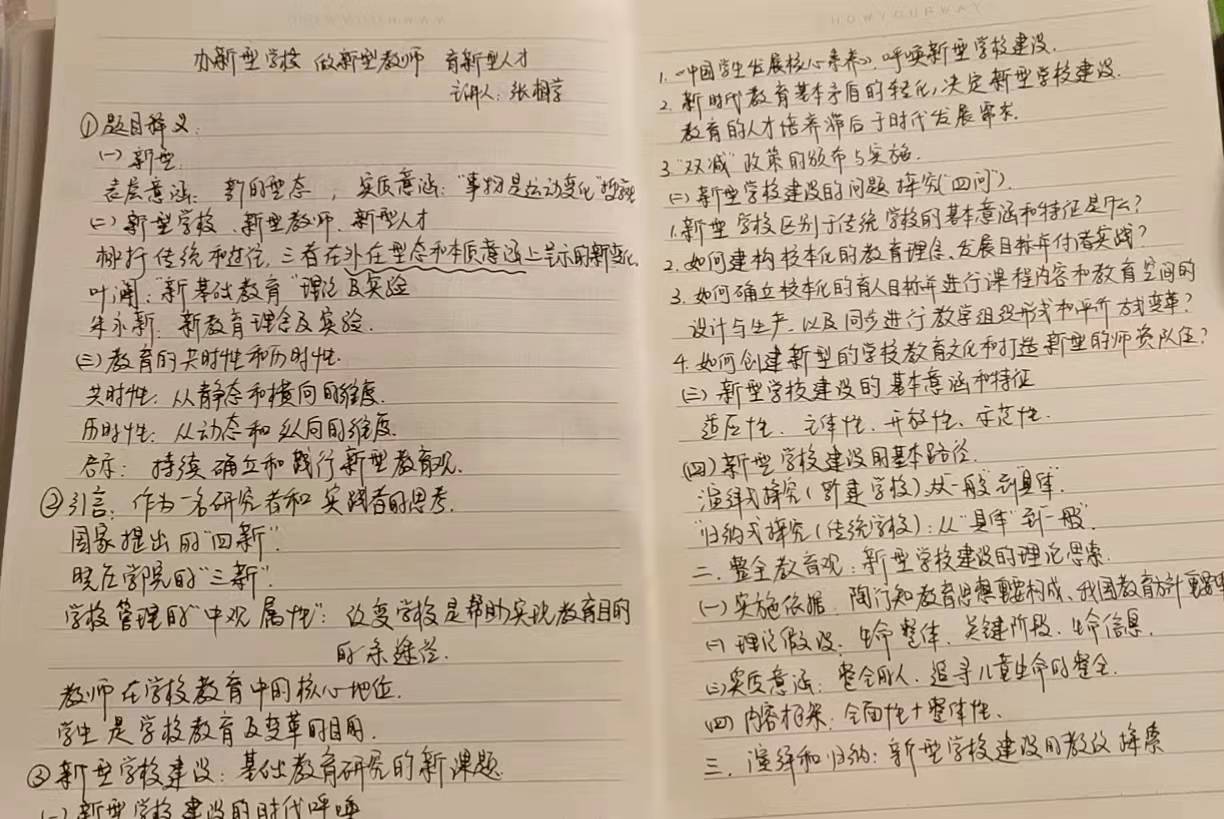 办新型学校 做新型教师 育新型人才
主讲人：张相学
①题目释义：
(一)新型
表层意涵：新的型态，实质意涵："事物是运动变化"
(二)新型学校、新型教师、新型人才
传统和过往，三者在外在型态和本质意涵上呈示的新变化
叶澜："新基础教育"理论及实验
朱永新：新教育理念及实验.
(三)教育的共时性和历时性.
共时性：从静态和横向的维度.
历时性：从动态和纵向的维度.
启示：持续确立和践行新型教育观.
②引言：作为一名研究者和实践者的思考.
国家提出的"四新".
晓庄学院的"三新".
学校管理的"中观属性"：改变学校是帮助实现教育目的
的 途径.
教师在学校教育中的核心地位.
学生是学校教育及变革的目的.
③新型学校建设：基础教育研究的新课题
(一)新型学校建设的时代呼唤
1.《中国学生发展核心素养》，呼唤新型学校建设.
2.新时代教育基本矛盾的转化，决定新型学校建设.
教育的人才培养滞后于时代发展需求.
3."双减"政策的颁布与实施.
(二)新型学校建设的问题探究("四问").
1.新型学校区别于传统学校的基本意涵和特征是什么?
2.如何建构校本化的教育理念、发展目标并付诸实践?
3.如何确立校本化的育人目标并进行课程内容和教育空间的
设计与生产，以及同步进行教学组织形式和评价方式变革?
4.如何创建新型的学校教育文化和打造新型的师资队伍?
(三)新型学校建设的基本意涵和特征
适应性、主体性、开放性、示范性.
(四)新型学校建设的基本路径.
"演绎式探究(新建学校)：从"一般"到"具体".
"归纳式探究(传统学校)：从"具体"到"一般".
二、整全教育观：新型学校建设的理论思索.
(一)实施依据：陶行知教育思想重要构成、我国教育方针重要
(二)理论假设：生命整体、关键阶段、生命信息.
(三)实质意涵：整全的人、追寻儿童生命的整全.
(四)内容框架：全面性+整体性、
三、演绎和归纳：新型学校建设的 探索